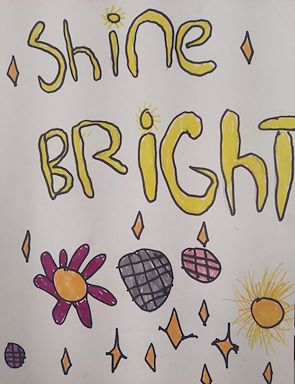 Shine
BRiGhT